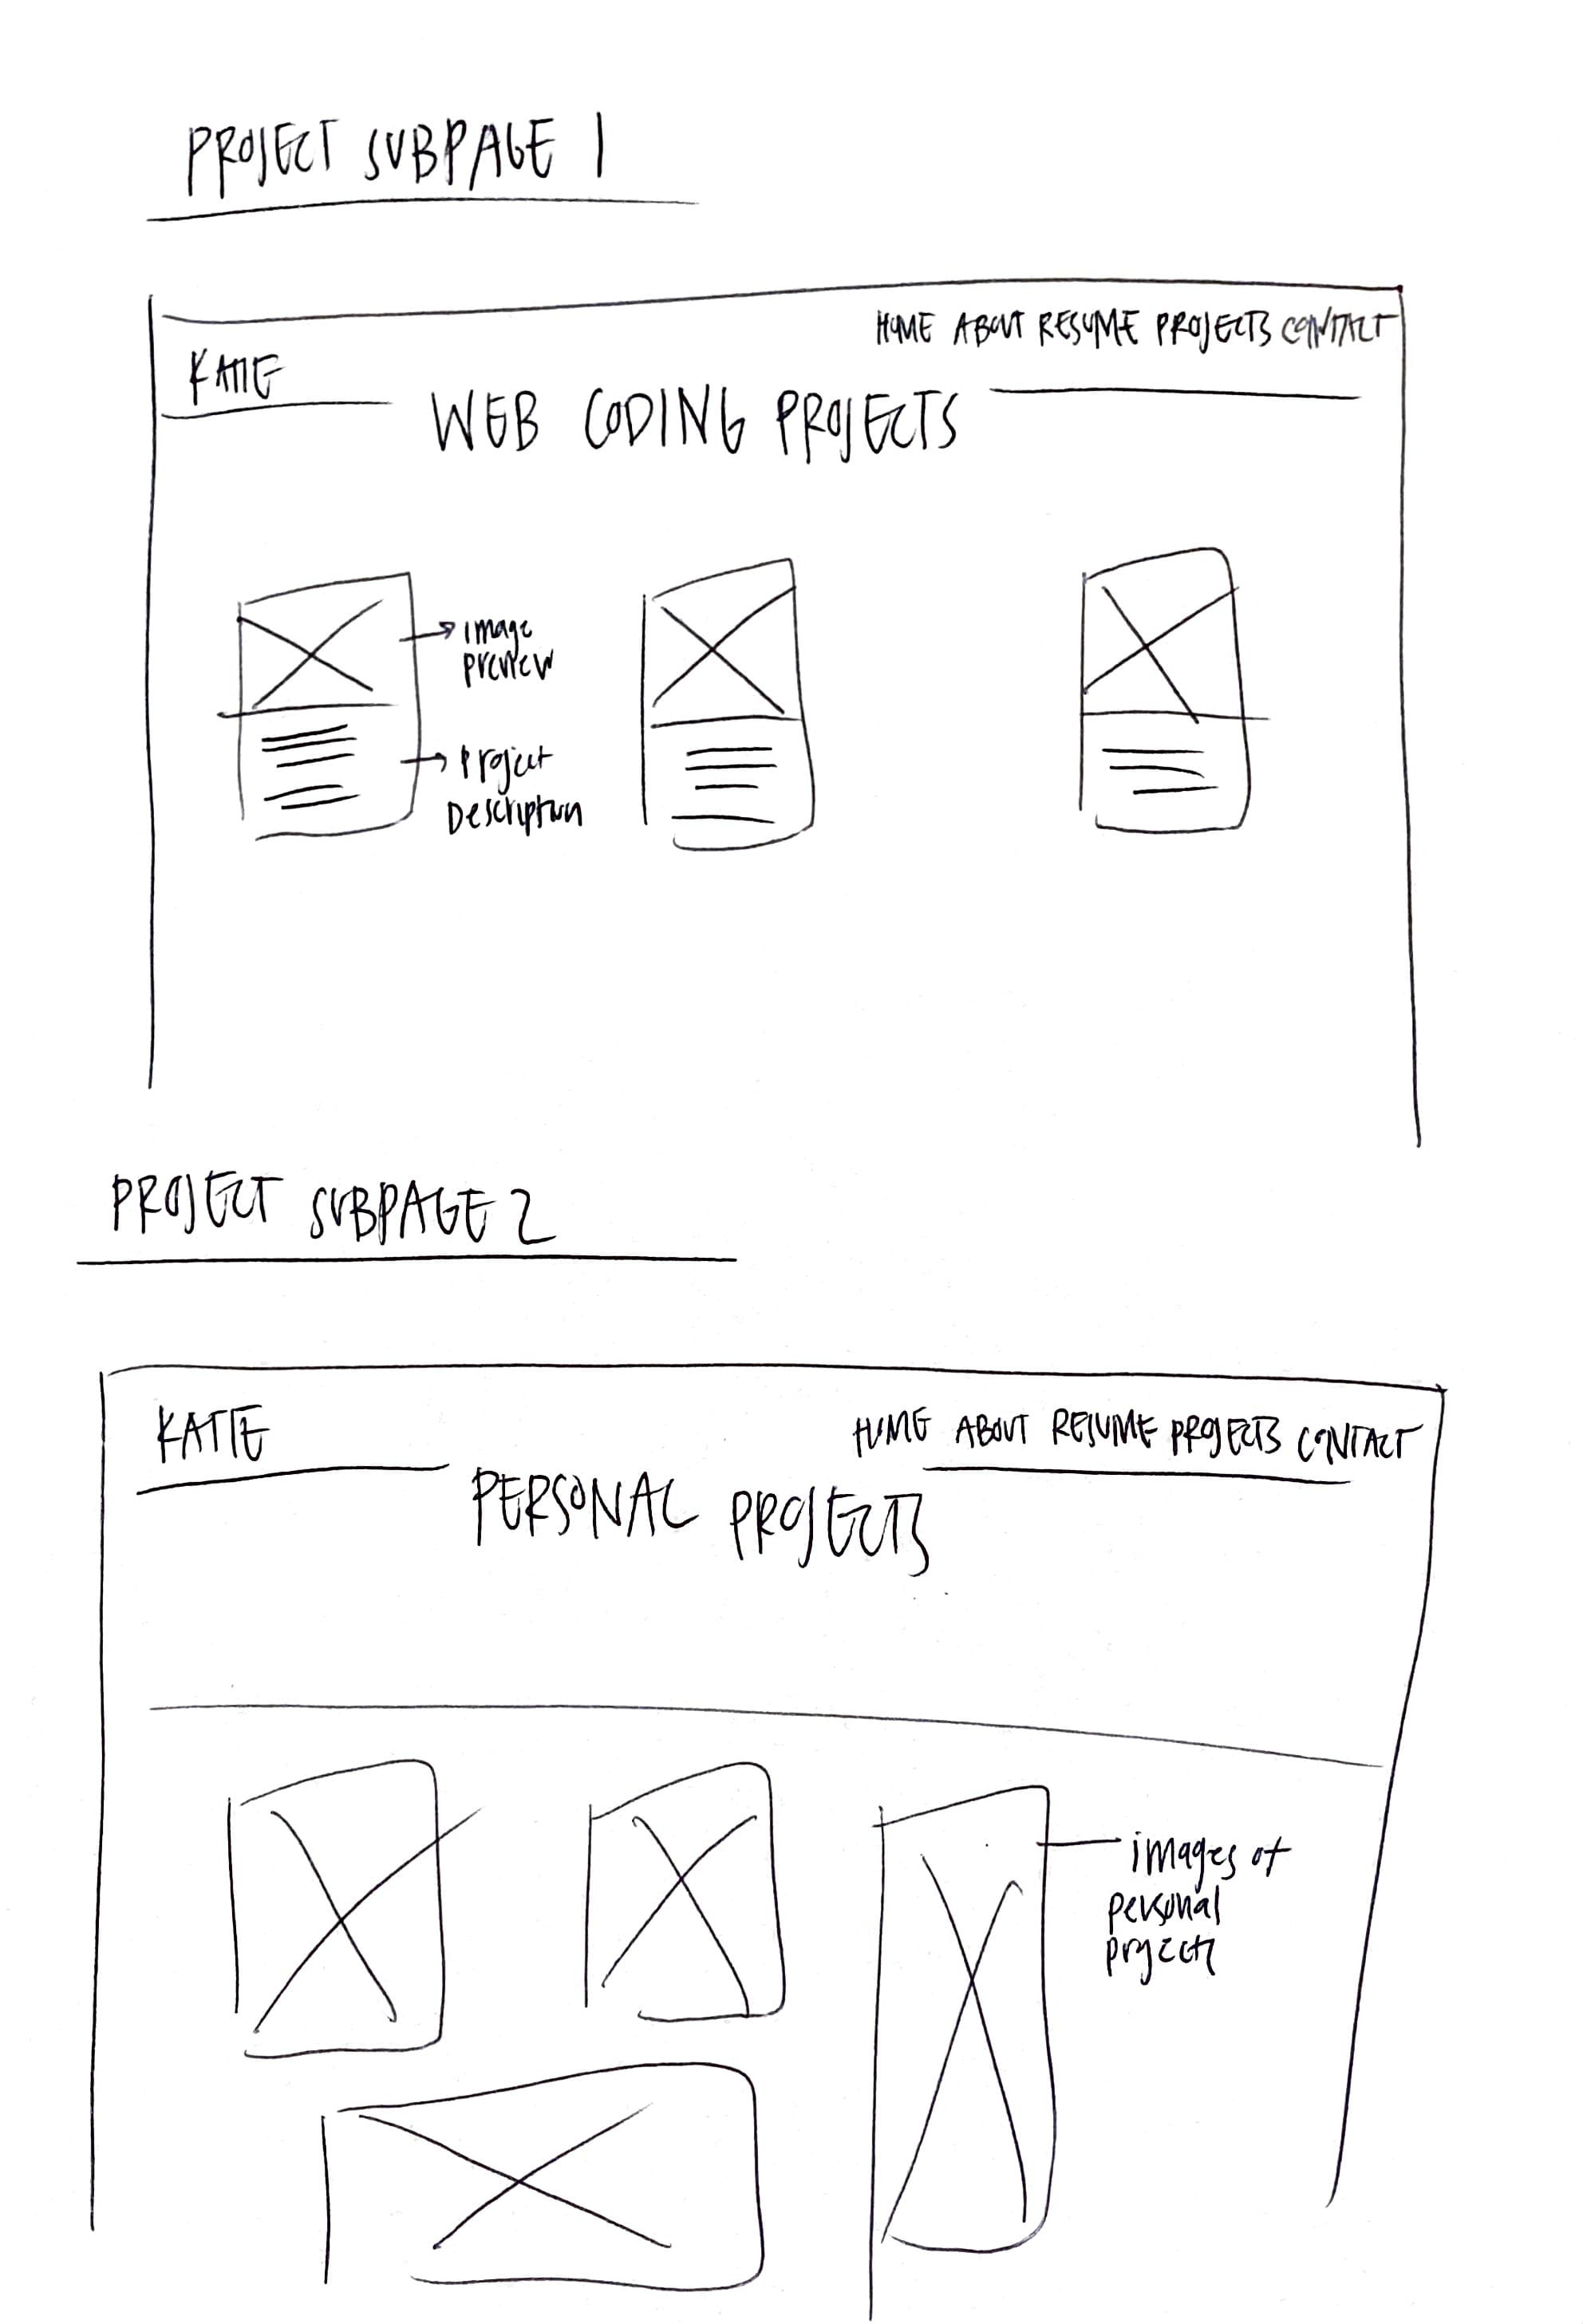 PROJECT SUBPAGE 1
HOME ABOUT RESUME PROJECTS CONTACT
KATIE
WEB CODING PROJECTS
image
preview
Project
Description
PROJECT SUBPAGE 2
KATIE
HOME ABOUT RESUME PROJECTS CONTACT
PERSONAL PROJECTS
images of
personal
projects